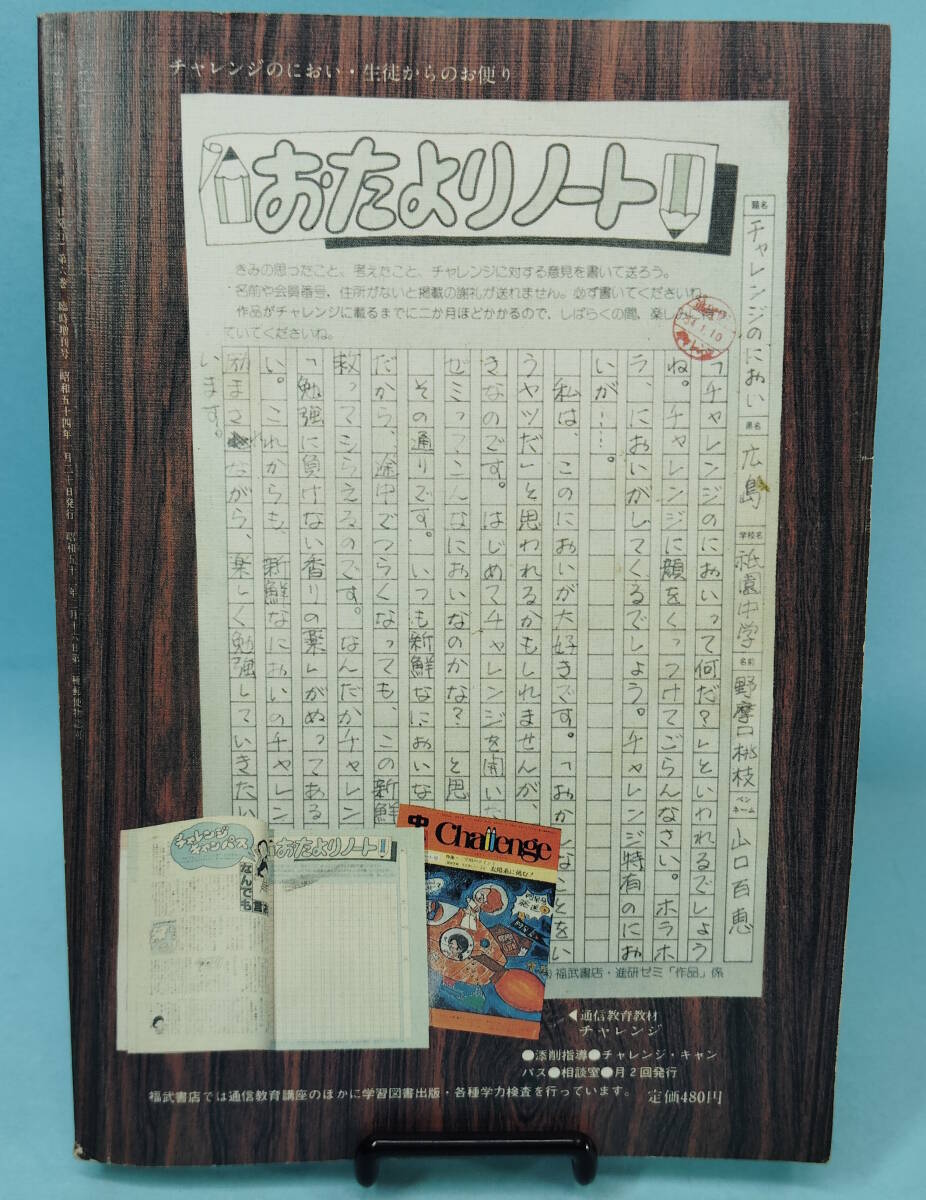 チャレンジのにおい・生徒からのお便り
おたよりノート
きみの思ったこと、考えたこと、チャレンジに対する意見を書いて送ろう。
名前や会員番号、住所がないと掲載の謝礼が送れません。必ず書いてくださいね。
作品がチャレンジに載るまでに二か月ほどかかるので、しばらくの間、楽しみに待っ
ていてくださいね。
題名 チャレンジのにおい 県名 広島 学校名 祇園中学 名前 野摩口桃枝 ペンネーム 山口百恵
「チャレンジのにおいって何だ?」といわれるでしょう
ね。チャレンジに顔をくっつけてごらんなさい。ホラホ
ラ、においがしてくるでしょう。チャレンジ特有のにお
いが……。
私は、このにおいが大好きです。「おかしなことをい
うヤツだ」と思われるかもしれませんが、
きなのです。はじめてチャレンジを開いた
ゼミってこんなにおいなのかな?と思
その通りです。いつも新鮮なにおいな
だから、途中でつらくなっても、この新鮮
救ってもらえるのです。なんだかチャレン
「勉強に負けない香りの薬」がぬってある
い。これからも、新鮮なにおいのチャレン
励まされながら、楽しく勉強していきたい
います。
福武書店・進研ゼミ「作品」係
チャレンジキャンパス
なんでも言
おたよりノート
中
Challenge
太陽系に挑む!
◀通信教育教材
チャレンジ
●添削指導●チャレンジ・キャン
パス●相談室●月2回発行
福武書店では通信教育講座のほかに学習図書出版・各種学力検査を行っています。 定価480円
臨時増刊号 昭和五十四年